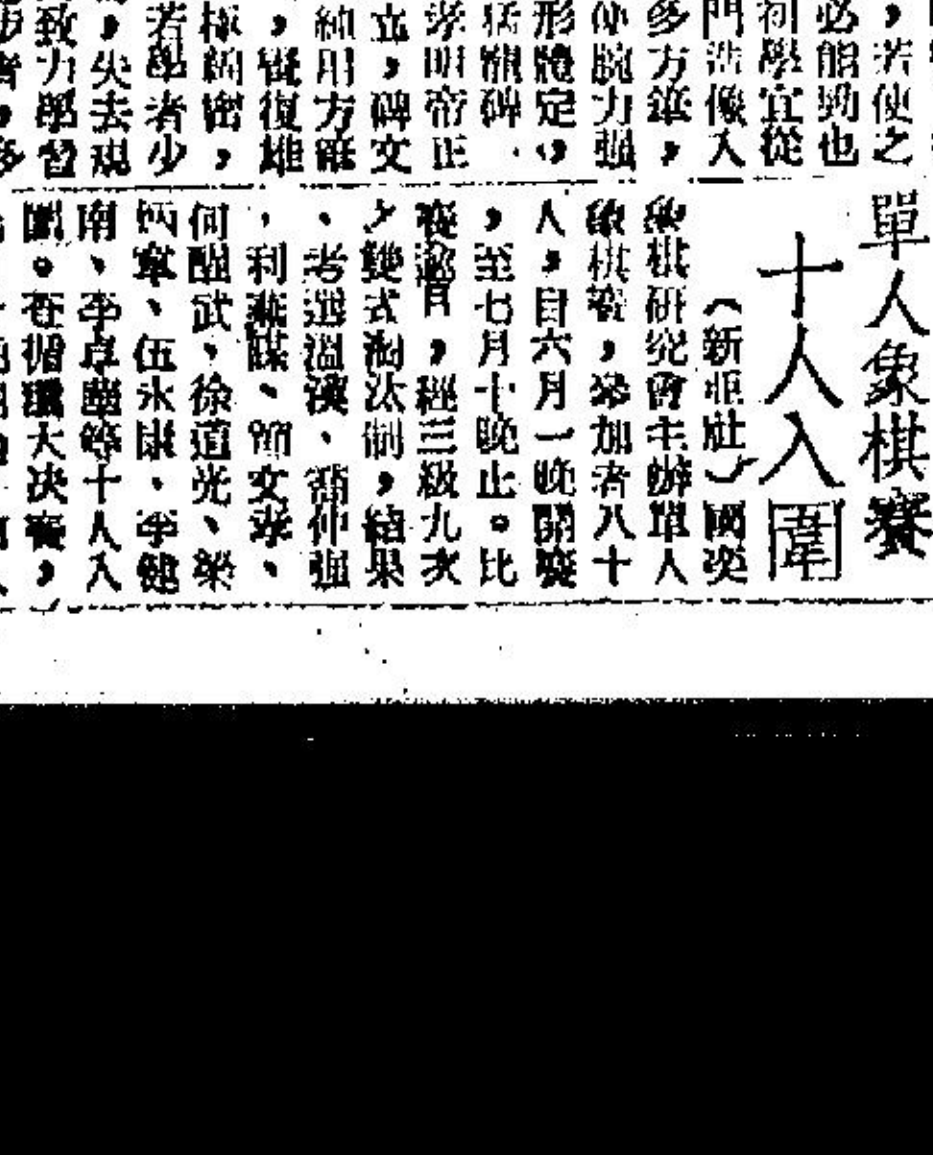 ，若使之
必能勁也
初學宜從
門造像入
多方筆，
使腕力強
形體定，
猛龍碑
孝明帝正
立，碑文
純用方筆
，寶復雄
極綢密，
若學者少
，失去規
致力學習
步者，多
單人象棋賽
十人入圍
（新亞社）國奕
象棋研究會主辦單人
象棋賽，參加者八十
人，自六月一晚開賽
，至七月十晚止。比
賽逾月，經三級九次
之雙式淘汰制，結果
、考選溫漢、 仲強
，利 謀、簡文 、
何醒武，徐道光、樂
炳 、伍永康、李健
南、李卓 等十人入
圍。在循環大決賽，